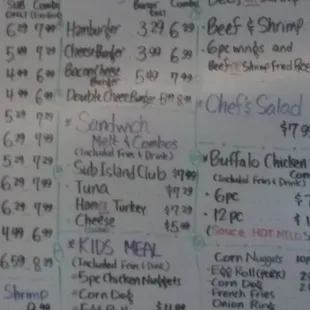 SUB Combo
6.29 7.99
5.49 7.29
4.99 6.99
4.99 6.99
5.29 7.29
6.29 7.99
5.29 7.29
6.29 7.99
6.29 7.99
4.99 6.99
6.59 8.29
Shrimp
Burger Combo
Only
Hamburger 3.29 6.29
Cheese Burger 3.99 6.99
Bacon Cheese Burger 5.49 7.99
Double Cheese Burger
* Sandwich
Melt & Combos
(Included Fries & Drink)
Sub Island Club $7.99
Tuna $7.29
Ham & Turkey $7.29
Cheese $5.99
* KIDS MEAL
(Included Fries & Drink)
5pc Chicken Nuggets
Corn Dog
Beef & Shrimp
Beef & Shrimp
6pc wings and
Beef & Shrimp Fried Rice
Chef's Salad
$7.9
* Buffalo Chicken
(Included Fries & Drink)
6pc $
12pc $
(Sauce HOT MILD
Corn Nuggets 10p
Egg Roll
Corn Dog
French Fries
Onion Ring